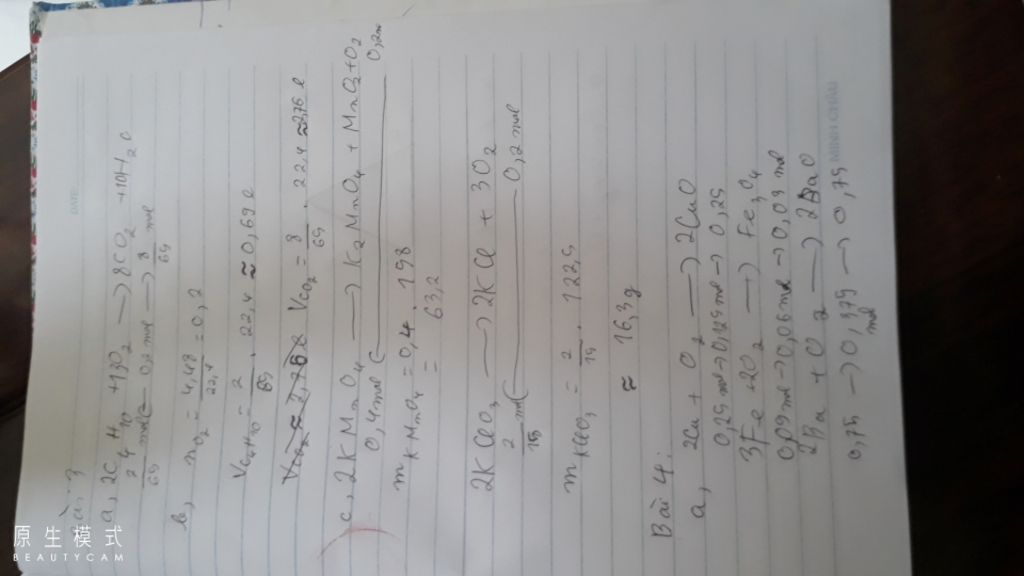 Bài 3
a, 2C4H10 + 13O2 → 8CO2 + 10H2O
2/65 mol ← 0,2 mol → 8/65 mol
b, nO2 = 4,48/22,4 = 0,2
VC4H10 = 2/65 . 22,4 ≈ 0,69 l
VCO2 = 8/65 . 22,4 ≈ 2,76 l
c, 2KMnO4 → K2MnO4 + MnO2 + O2
0,4 mol 0,2 mol
mKMnO4 = 0,4 . 158
= 63,2
2KClO3 → 2KCl + 3O2
2/15 mol 0,2 mol
mKClO3 = 2/15 . 122,5
≈ 16,3 g
Bài 4.
a, 2Cu + O2 → 2CuO
0,25 mol → 0,125 mol → 0,25
3Fe + 2O2 → Fe3O4
0,09 mol → 0,06 mol → 0,03 mol
2Ba + O2 → 2BaO
0,75 → 0,375 → 0,75
mol
MINH CHÂU
原生模式
BEAUTYCAM